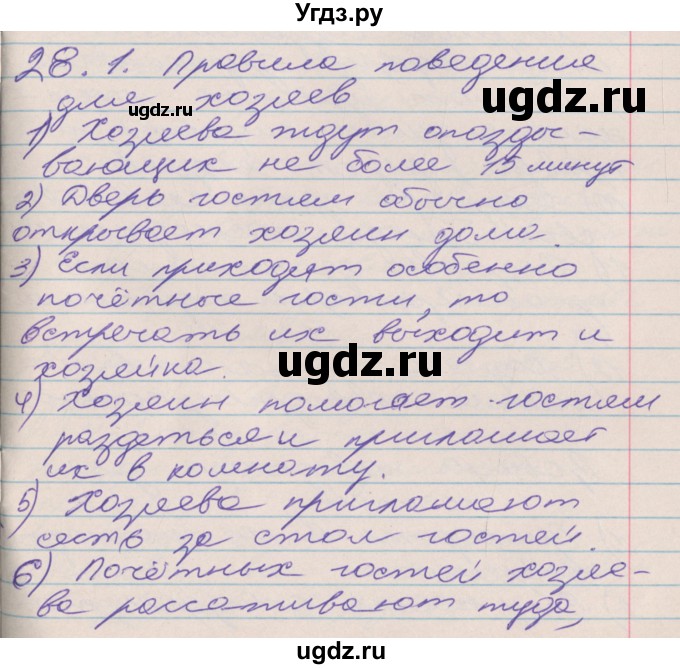 Угдз.ру
28. 1. Правила поведения
для хозяев
ugdz.ru
ugdz.ru
1) Хозяева ждут опозды-
вающих не более 15 минут
2) Дверь гостям обычно
открывает хозяин дома.
ugdz.ru
3) Если приходят особенно
почётные гости, то
встречать их выходит и
хозяйка.
ugdz.ru
4) Хозяин помогает гостям
раздеться и приглашает
их в комнату.
5) Хозяева приглашают
сесть за стол гостей.
ugdz.ru
6) Почётных гостей хозяе-
ва рассаживают туда,
ugdz.ru